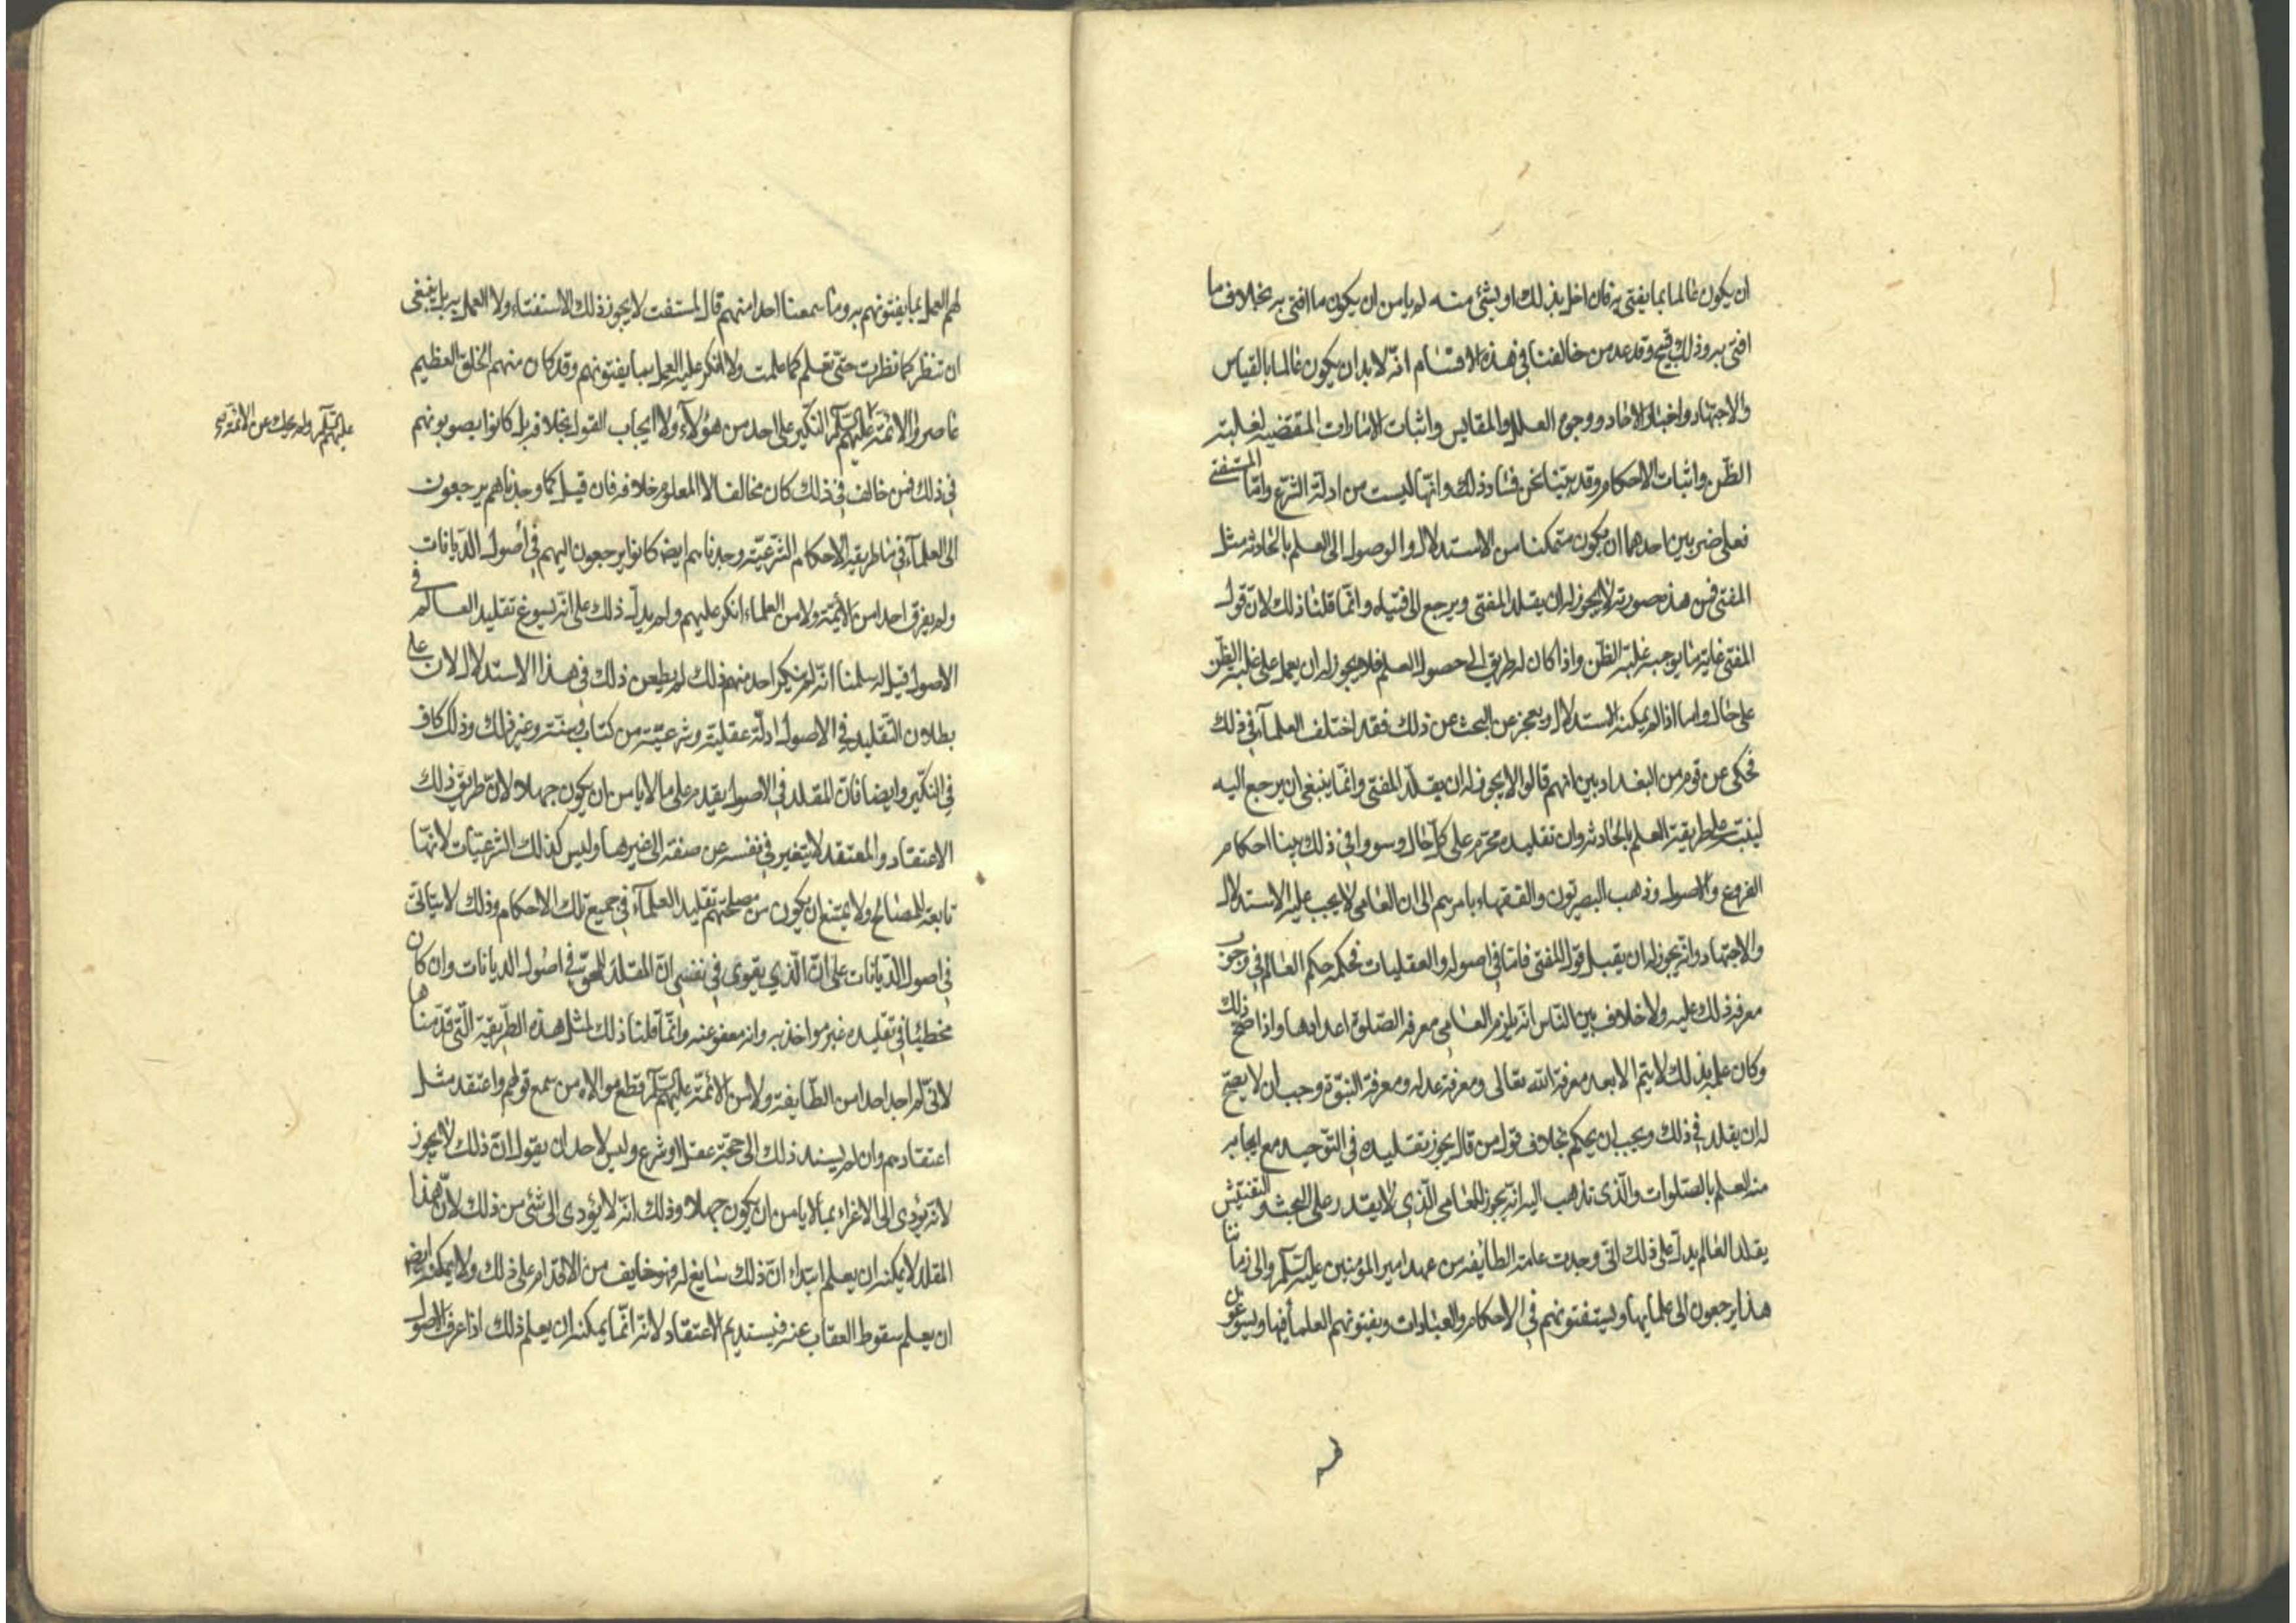 ان يكون عالما بما يفتي به فان اخل بذلك او بشئ منه لم يامن ان يكون ما افتى به بخلاف ما
افتى به وذلك قبيح وقد عد من خالفنا في هذه الاقسام انه لا بد ان يكون عالما بالقياس
والاجتهاد واخبار الاحاد ووجوه العلل والمقايس واثبات الامارات المقتضيه لغلبة
الظن واثبات الاحكام وقد بينا نحن فساد ذلك وانها ليست من ادلة الشرع واما المستفتى
فعلى ضربين احدهما ان يكون متمكنا من الاستدلال والوصول الى العلم بالحادثه مثل
المفتى فمن هذه صورته لا يجوز له ان يقلد المفتى ويرجع الى فتياه وانما قلنا ذلك لان قول
المفتى غاية ما يوجبه غلبة الظن واذا كان له طريق الى حصول العلم فلا يجوز له ان يعمل على غلبة الظن
على حال واما اذا لم يمكنه الاستدلال ويعجز عن البحث عن ذلك فقد اختلف العلمآء في ذلك
فحكى عن قوم من البغداديين انهم قالوا لا يجوز له ان يقلد المفتى وانما ينبغى ان يرجع اليه
لينبه على طريقة العلم بالحادثه وان تقليده محرم على كل حال وسووا في ذلك بينا احكام
الفروع والاصول وذهب البصريون والفقهاء باسرهم الى ان العامى لا يجب عليه الاستدلال
والاجتهاد وانه يجوز له ان يقبل قول المفتى فاما في اصوله والعقليات فحكمه حكم العالم في وجوب
معرفة ذلك عليه ولا خلاف بين الناس انه يلزم العامى معرفة الصلوة اعدادها واذا صح ذلك
وكان علمه بذلك لا يتم الا بعد معرفة الله تعالى ومعرفة عدله ومعرفة النبوة وجب ان لا يصح
له ان يقلد في ذلك ويجب ان يحكم بخلاف قول من قال يجوز تقليده في التوحيد مع ايجابه
منه العلم بالصلوات والذى نذهب اليه انه يجوز للعامى الذى لا يقدر على البحث والتفتيش
يقلد العالم يدل على ذلك انى وجدت عامة الطائفه من عهد امير المؤمنين عليه السلام والى زماننا
هذا يرجعون الى علمايها ويستفتونهم في الاحكام والعبادات ويفتونهم العلمآء فيها ويسوغون
لهم العمل بما يفتونهم به وما سمعنا احدا منهم قال لمستفت لا يجوز ذلك الاستفتاء ولا العمل به بل ينبغى
ان تنظر كما نظرت حتى تعلم كما علمت ولا انكر عليه العمل بما يفتونهم وقد كان منهم الخلق العظيم
عاصروا الائمة عليهم السلام النكير على احد من هؤلآء ولا ايجاب القول بخلافه بل كانوا يصوبونهم
عليهم السلام ولم يحك عن الائمة
في ذلك فمن خالف في ذلك كان مخالفا لا المعلوم خلافه فان قيل كما وجدناهم يرجعون
الى العلمآء في ما طريقه الاحكام الشرعية وجدناهم ايضا كانوا يرجعون اليهم في اصول الديانات
ولم يفرق احد من الائمة ولا من العلماء انكر عليهم ولم يدل ذلك على انه يسوغ تقليد العالم في
الاصول قيل له سلمنا انه لم ينكر احد منهم ذلك لم يطعن ذلك في هذا الاستدلال لان على
بطلان التقليد في الاصول ادلة عقلية وشرعية من كتاب وسنة وغير ذلك وذلك كاف
في النكير وايضا فان المقلد في الاصول يقدم على ما لا يامن ان يكون جهلا لان طريق ذلك
الاعتقاد والمعتقد لا يتغير في نفسه عن صفة الى غيرها وليس كذلك الشرعيات لانها
تابعة للمصالح ولا يمتنع ان يكون من مصلحتهم تقليد العلمآء في جميع تلك الاحكام وذلك لا يتاتى
في اصول الديانات على ان الذي يقوى في نفسي ان المقلد للمحق في اصول الديانات وان كان
مخطئا في تقليده غير مواخذ به وانه معفو عنه وانما قلنا ذلك لمثل هذه الطريقة التى قدمناها
لانى لم اجد احدا من الطايفة ولا من الائمة عليهم السلام قطع موالاه من سمع قولهم واعتقد مثل
اعتقادهم وان لم يسند ذلك الى حجة عقل او شرع وليس لاحد ان يقول ان ذلك لا يجوز
لانه يؤدى الى الاغراء بما لا يامن ان يكون جهلا وذلك انه لا يؤدى الى شئ من ذلك لان هذا
المقلد لا يمكنه ان يعلم ابتداء ان ذلك سايغ له فهو خايف من الاقدام على ذلك ولا يمكنه ايضا
ان يعلم سقوط العقاب عنه فيستديم الاعتقاد لانه انما يمكنه ان يعلم ذلك اذا عرف الاصول